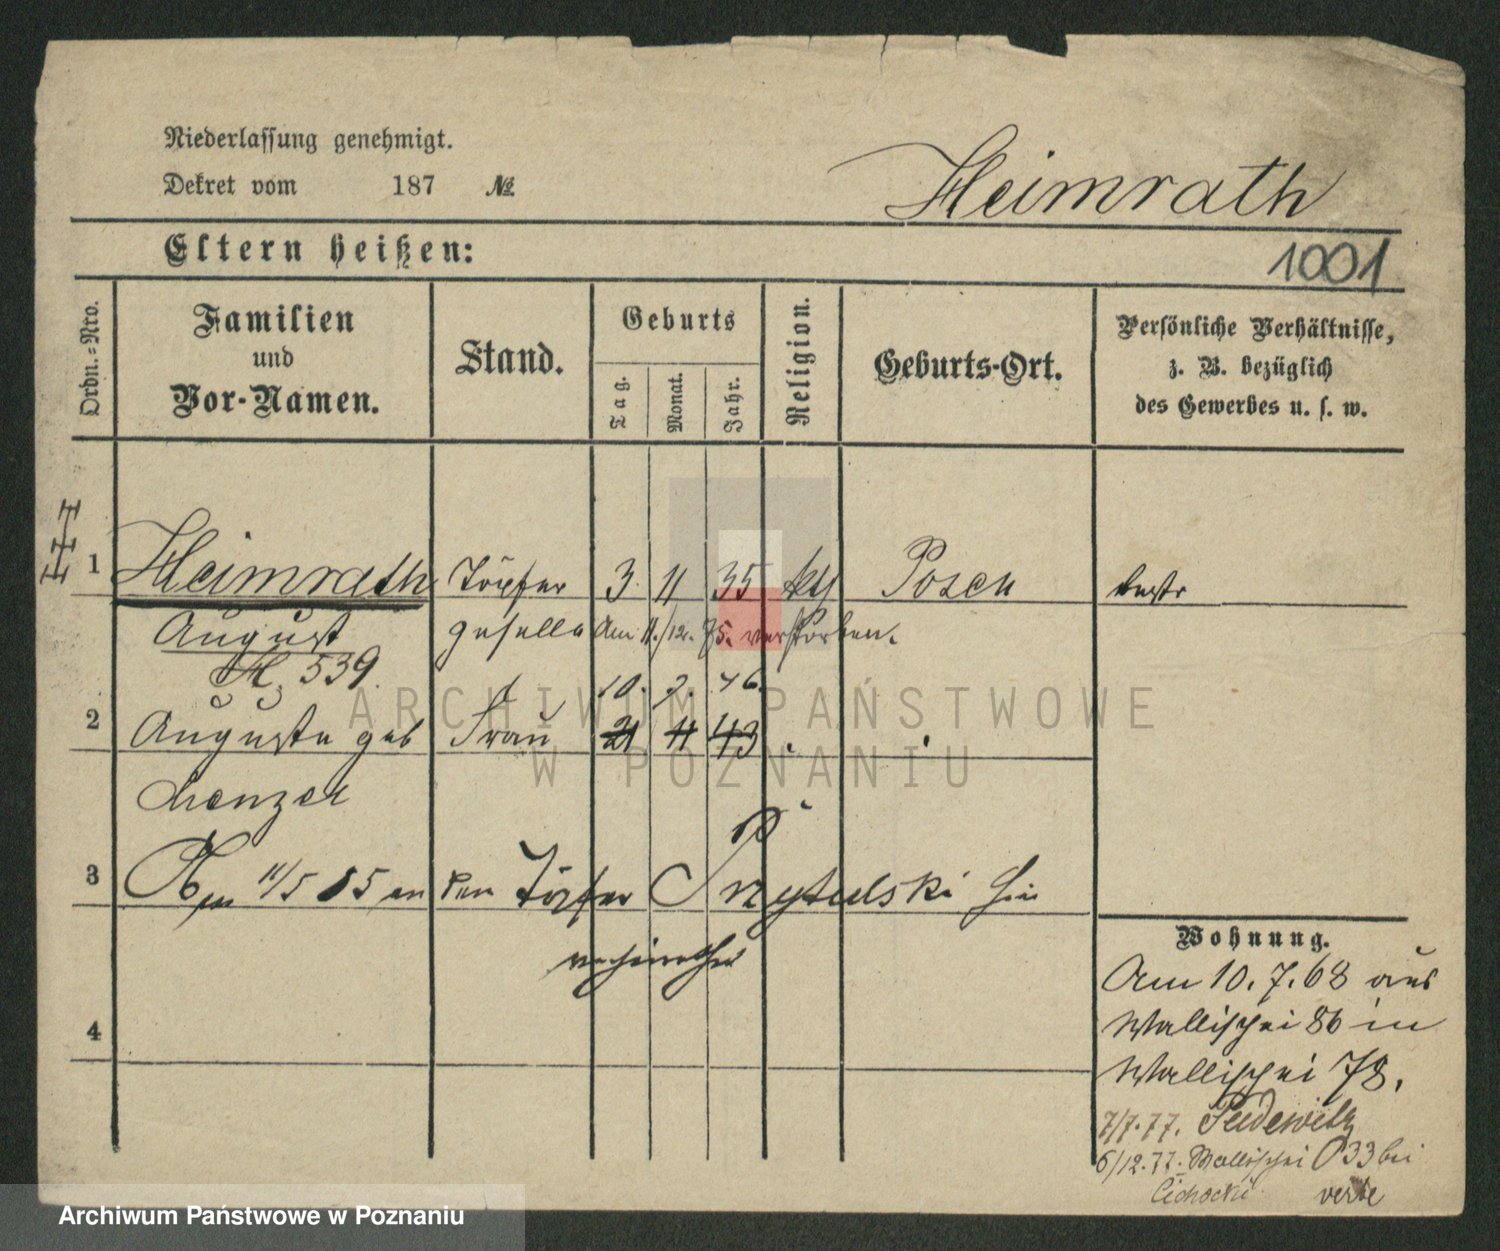 Niederlassung genehmigt.
Dekret vom 187 №
Heimrath
Eltern heißen:
1001
Ordn.-Nro.
Familien und Vor-Namen.
Stand.
Geburts
Tag.
Monat.
Jahr.
Religion.
Geburts-Ort.
Persönliche Verhältnisse,
z. B. bezüglich
des Gewerbes u. s. w.
1 Heimrath Töpfer 3. 11 35 kth Posen
August geselle Am 11./12. 75. verstorben.
H. 539
10. 2. 46.
2 Auguste geb Frau 21 11 43
Menzel
3 Am 11/5 85 an den Töpfer Przybylski hier
verheirathet
4
Wohnung.
Am 10. 7. 68 aus
Wallischei 86 in
Wallischei 78.
7/7. 77.
6/12. 77. Wallischei 33 bei
Cichocki
ARCHIWUM PAŃSTWOWE
W POZNANIU
Archiwum Państwowe w Poznaniu